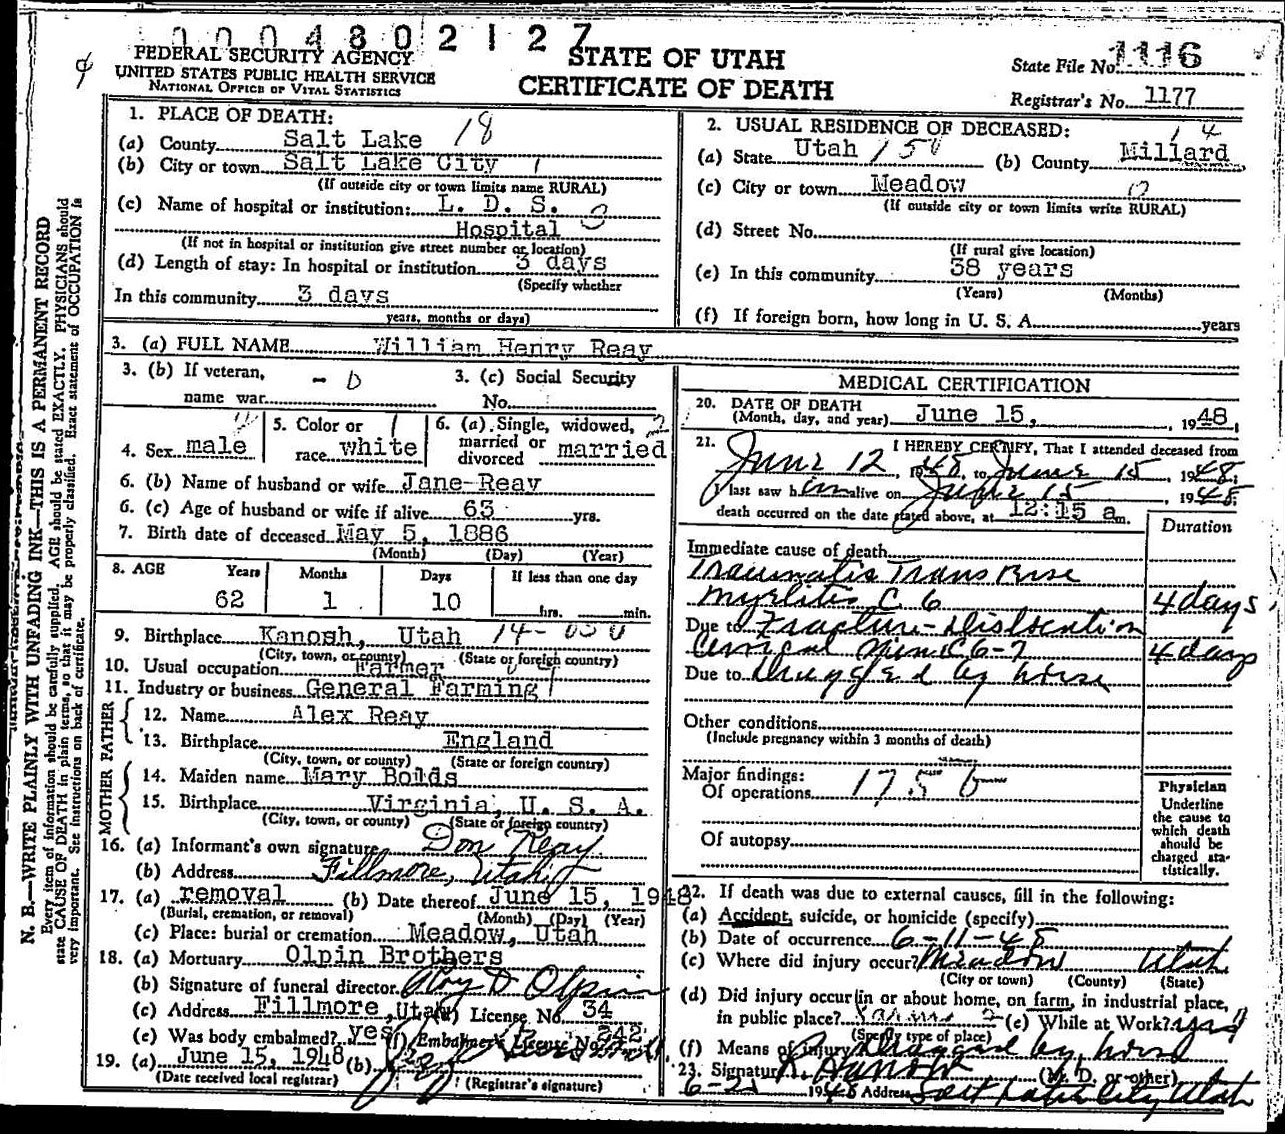 0004802127
FEDERAL SECURITY AGENCY
UNITED STATES PUBLIC HEALTH SERVICE
NATIONAL OFFICE OF VITAL STATISTICS
STATE OF UTAH
CERTIFICATE OF DEATH
State File No. 1116
Registrar's No. 1177
N. B.—WRITE PLAINLY WITH UNFADING INK—THIS IS A PERMANENT RECORD
Every item of information should be carefully supplied. AGE should be stated EXACTLY. PHYSICIANS should
state CAUSE OF DEATH in plain terms, so that it may be properly classified. Exact statement of OCCUPATION is
very important. See instructions on back of certificate.
1. PLACE OF DEATH:
(a) County Salt Lake 18
(b) City or town Salt Lake City 1
(If outside city or town limits name RURAL)
(c) Name of hospital or institution: L. D. S.
Hospital
(If not in hospital or institution give street number or location)
(d) Length of stay: In hospital or institution 3 days
(Specify whether
In this community 3 days
years, months or days)
2. USUAL RESIDENCE OF DECEASED:
(a) State Utah 150 (b) County Millard
(c) City or town Meadow
(If outside city or town limits write RURAL)
(d) Street No.
(If rural give location)
(e) In this community 38 years
(Years) (Months)
(f) If foreign born, how long in U. S. A. years
3. (a) FULL NAME William Henry Reay
3. (b) If veteran,
name war
3. (c) Social Security
No.
4. Sex male
5. Color or
race white
6. (a) Single, widowed,
married or
divorced married
6. (b) Name of husband or wife Jane Reay
6. (c) Age of husband or wife if alive 63 yrs.
7. Birth date of deceased May 5, 1886
(Month) (Day) (Year)
8. AGE Years Months Days If less than one day
62 1 10 hrs. min.
9. Birthplace Kanosh, Utah
(City, town, or county) (State or foreign country)
10. Usual occupation Farmer
11. Industry or business General Farming
FATHER
12. Name Alex Reay
13. Birthplace England
(City, town, or county) (State or foreign country)
MOTHER
14. Maiden name Mary Bolds
15. Birthplace Virginia, U. S. A.
(City, town, or county) (State or foreign country)
16. (a) Informant's own signature Don Reay
(b) Address Fillmore, Utah
17. (a) removal (b) Date thereof June 15, 1948
(Burial, cremation, or removal) (Month) (Day) (Year)
(c) Place: burial or cremation Meadow, Utah
18. (a) Mortuary Olpin Brothers
(b) Signature of funeral director Roy D Olpin
(c) Address Fillmore, Utah (d) License No. 34
(e) Was body embalmed? yes (f) Embalmer's License No. 342
19. (a) June 15, 1948 (b)
(Date received local registrar) (Registrar's signature)
MEDICAL CERTIFICATION
20. DATE OF DEATH
(Month, day, and year) June 15, 1948.
21. I HEREBY CERTIFY, That I attended deceased from
June 12 1948, to June 15, 1948.
I last saw him alive on June 15 1948
death occurred on the date stated above, at 12:15 a m.
Duration
Immediate cause of death
Traumatis Transverse
Myelitis C 6 4 days
Due to Fracture-Dislocation
Cervical Spine C 6-7 4 days
Due to Dragged by horse
Other conditions
(Include pregnancy within 3 months of death)
Major findings:
Of operations 175 b
Of autopsy
Physician
Underline
the cause to
which death
should be
charged sta-
tistically.
22. If death was due to external causes, fill in the following:
(a) Accident, suicide, or homicide (specify)
(b) Date of occurrence 6-11-48
(c) Where did injury occur? Meadow Utah
(City or town) (County) (State)
(d) Did injury occur in or about home, on farm, in industrial place,
in public place? Farm (e) While at Work? yes
(Specify type of place)
(f) Means of injury Dragged by horse
23. Signature (M. D. or other)
6-21 1948 Address Salt Lake City, Utah